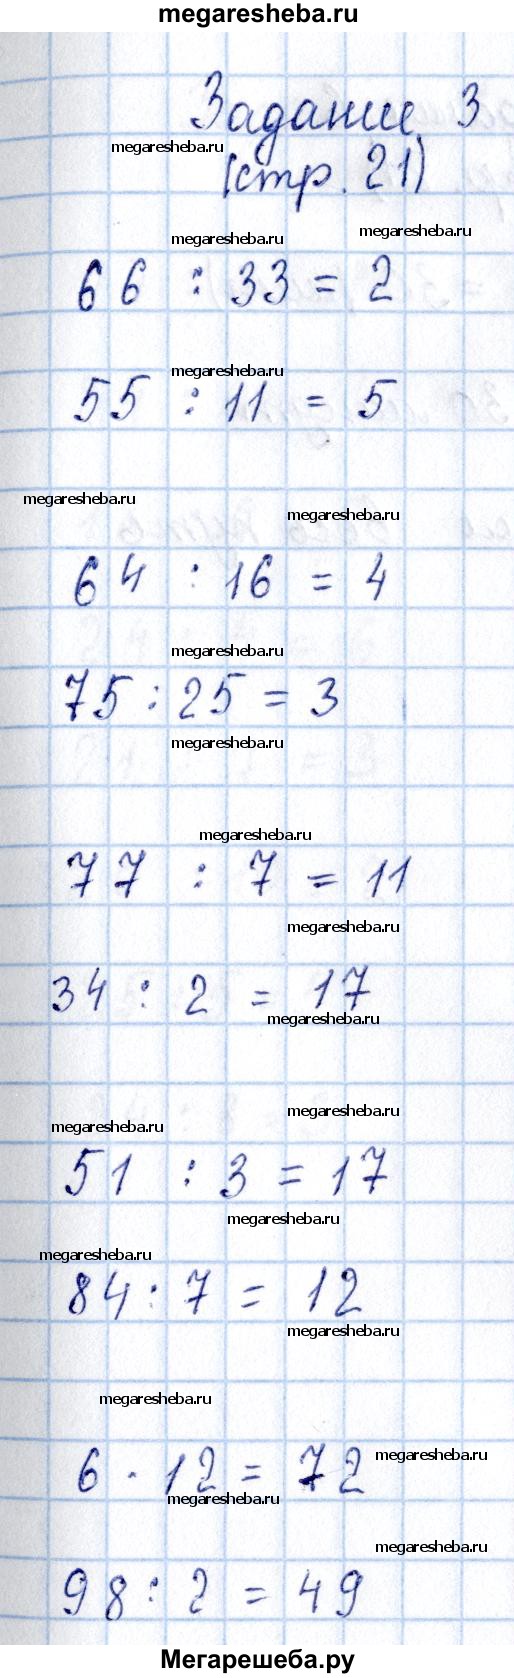 megaresheba.ru
Задание 3
megaresheba.ru
(стр. 21)
megaresheba.ru
megaresheba.ru
66 : 33 = 2
megaresheba.ru
55 : 11 = 5
megaresheba.ru
megaresheba.ru
64 : 16 = 4
megaresheba.ru
75 : 25 = 3
megaresheba.ru
megaresheba.ru
77 : 7 = 11
megaresheba.ru
34 : 2 = 17
megaresheba.ru
megaresheba.ru
megaresheba.ru
51 : 3 = 17
megaresheba.ru
megaresheba.ru
84 : 7 = 12
megaresheba.ru
megaresheba.ru
megaresheba.ru
6 · 12 = 72
megaresheba.ru
megaresheba.ru
98 : 2 = 49
Мегарешеба.ру